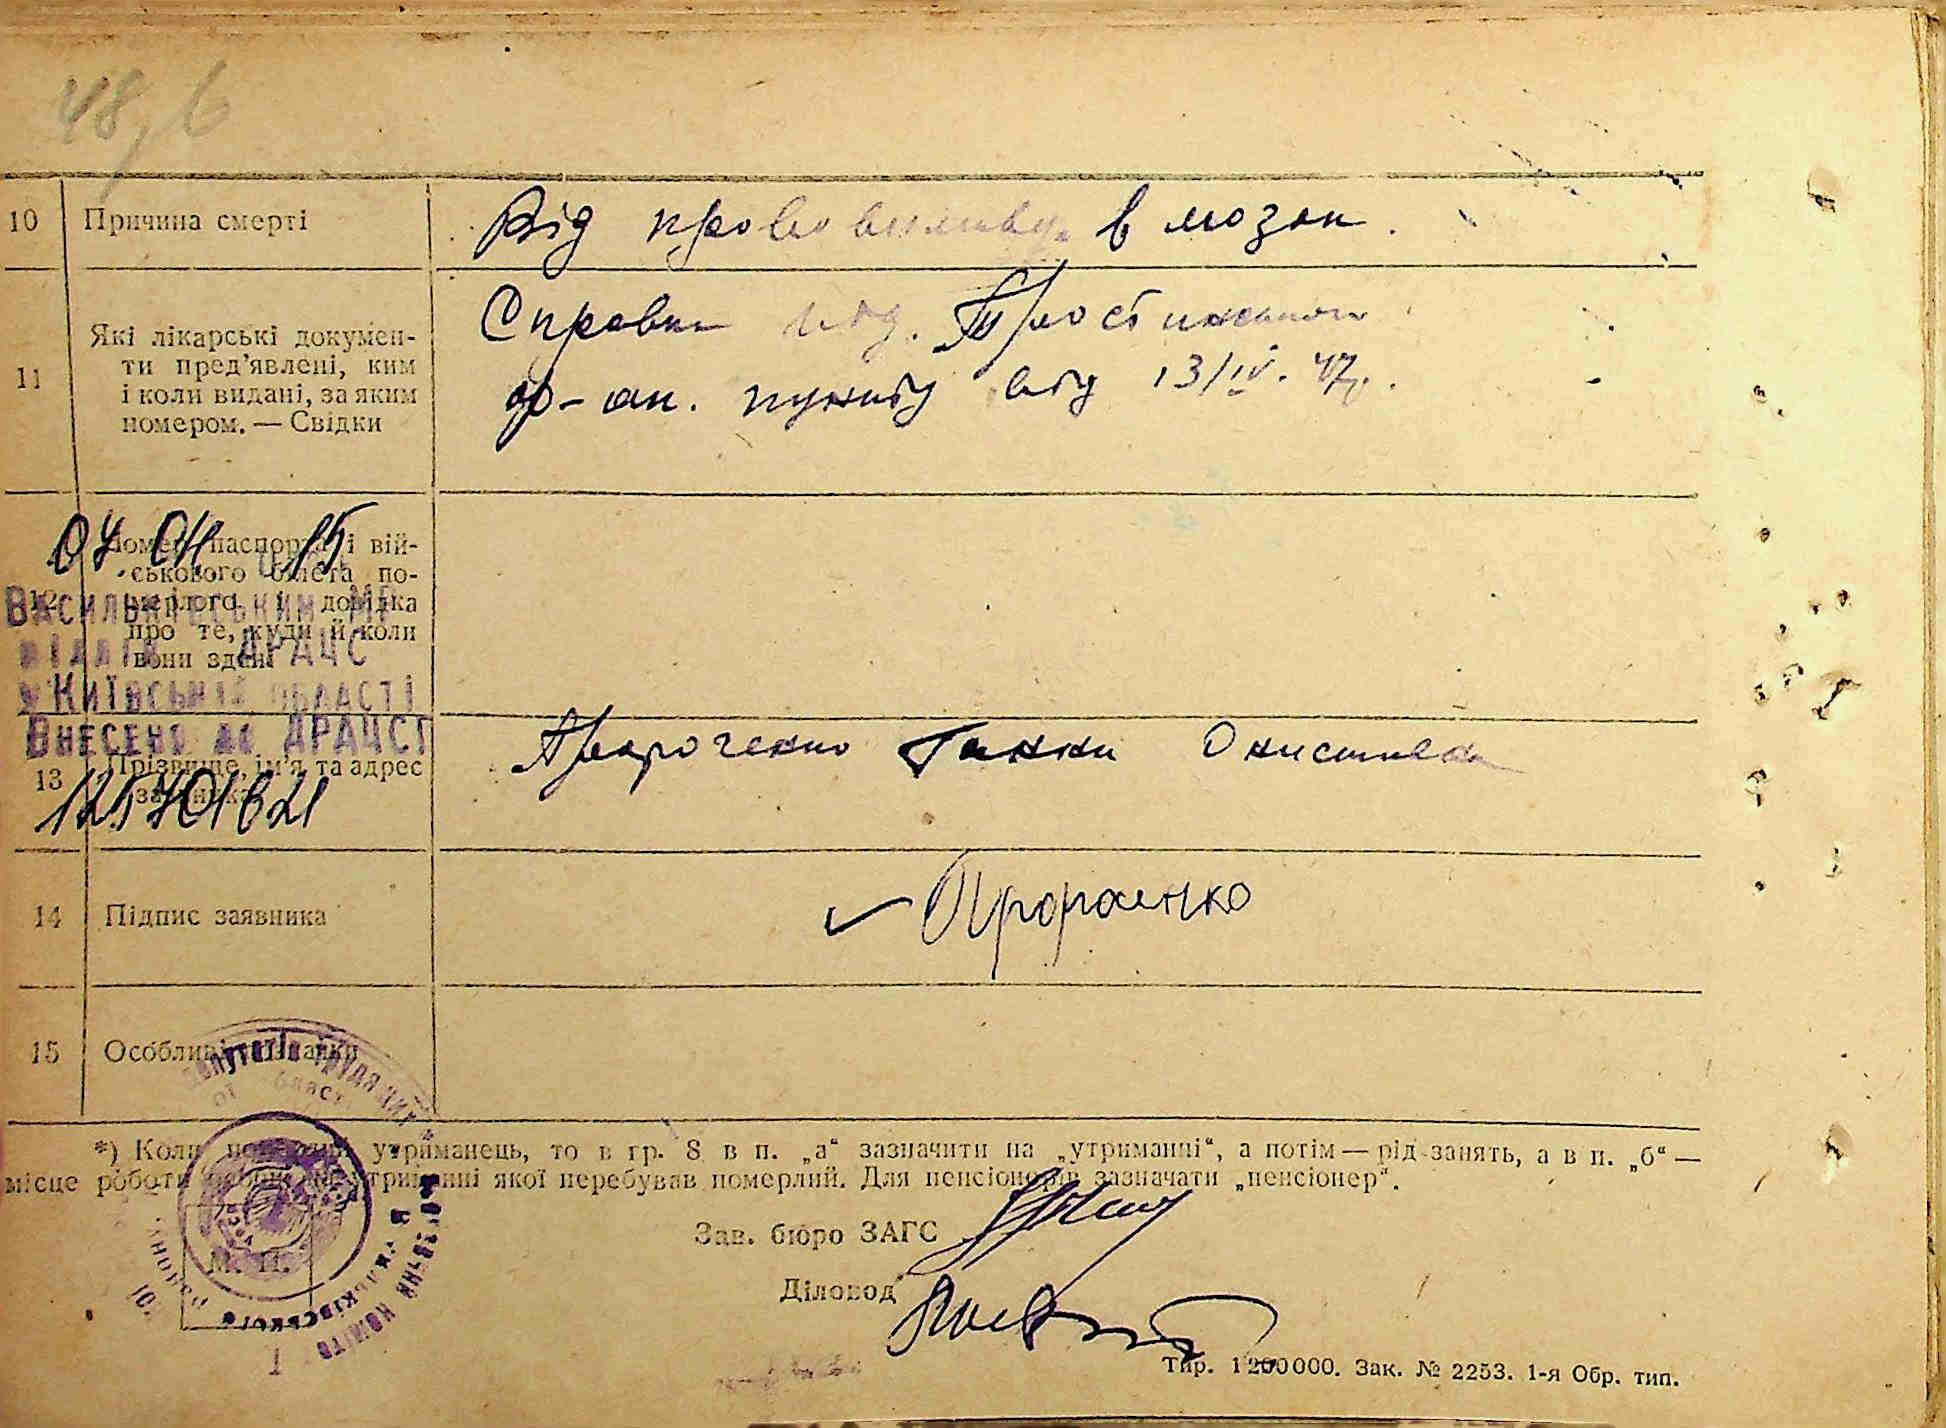 48, б
10 Причина смерті
Від крововиливу в мозок.
11 Які лікарські докумен-
ти пред’явлені, ким
і коли видані, за яким
номером. — Свідки
Справка від.
ф-ак. пункту від 13/IV. 47р.
07 04 15
12 Номер паспорта і вій-
ськового білета по-
мерлого і довідка
про те, куди й коли
вони здані
Васильківським МР
відділ ДРАЦС
у Київській області
Внесено до ДРАЦСГ
13 Прізвище, ім’я та адрес
заявника
Ганни Онисимівни
14 Підпис заявника
15 Особливі відзнаки
*) Коли померлий утриманець, то в гр. 8 в п. „а“ зазначити на „утриманні“, а потім — рід занять, а в п. „б“ —
місце роботи особи, на утриманні якої перебував померлий. Для пенсіонерів зазначати „пенсіонер“.
Зав. бюро ЗАГС
М. П.
Діловод
Тир. 1200000. Зак. № 2253. 1-я Обр. тип.